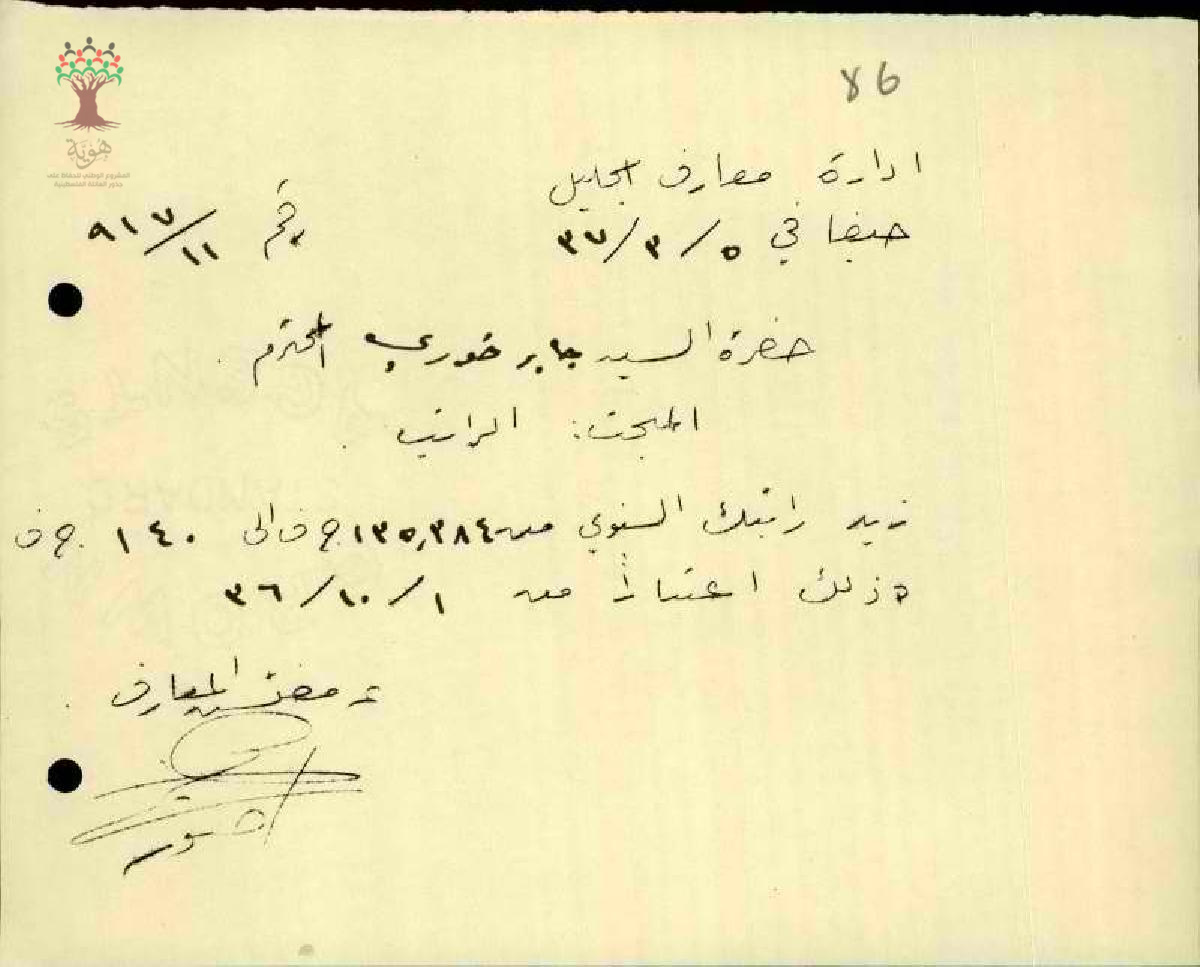 86
هوية
المشروع الوطني للحفاظ على
جذور العائلة الفلسطينية
ادارة معارف الجليل
حيفا في ٥/٣/٣٧
رقم ٩١٧/١١
حضرة السيد جابر خوري المحترم .
المبحث: الراتب .
زيد راتبك السنوي من ١٣٥,٣٨٤ ج ف الى ١٤٠ ج ف
وذلك اعتباراً من ١/١٠/٣٦
ع مفتش المعارف